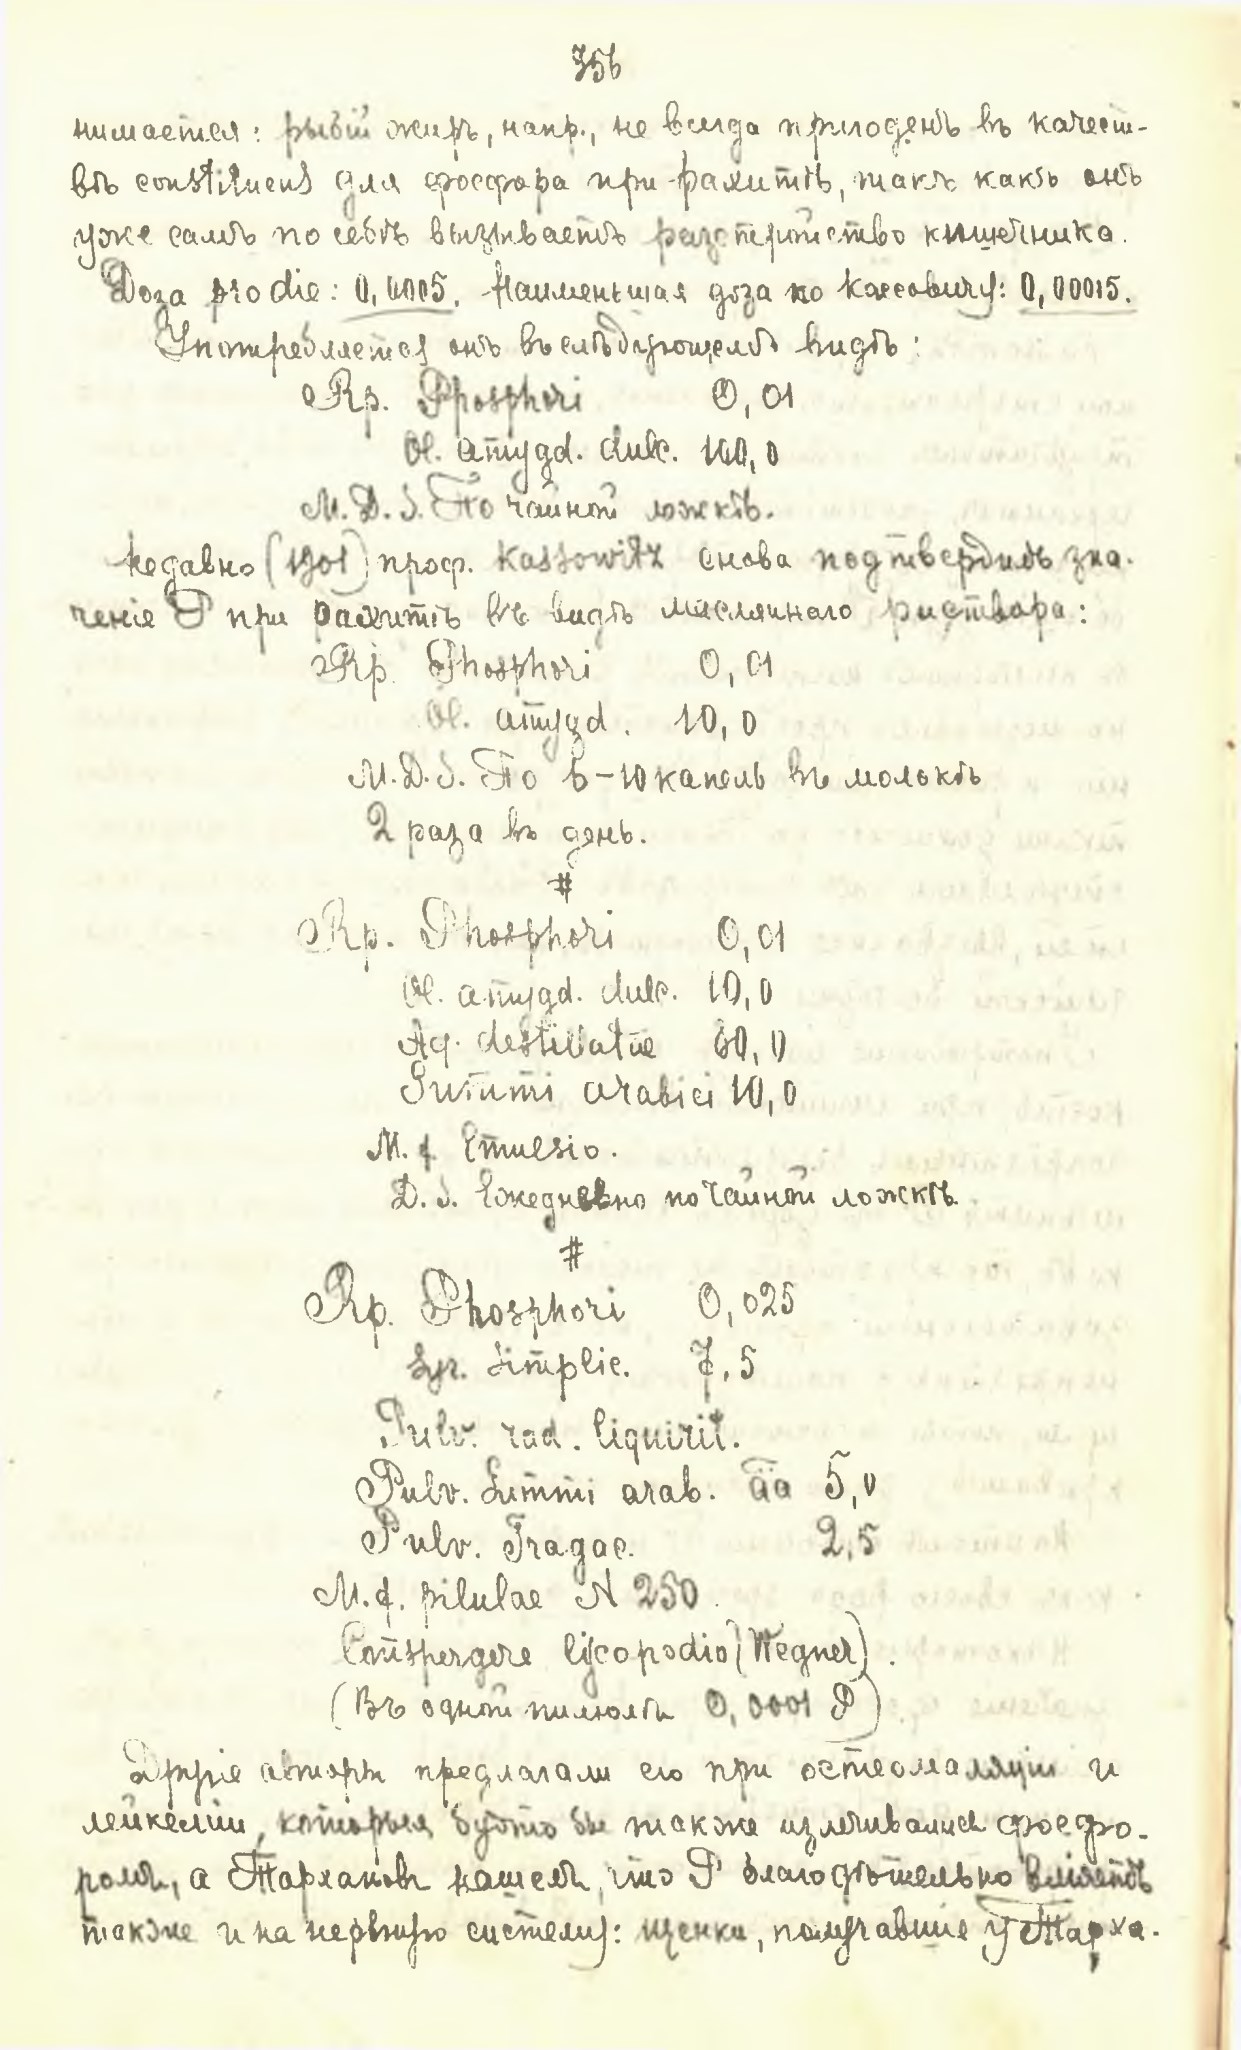 356
нимается: рыбій жиръ, напр., не всегда пригоденъ въ качест-
вѣ constituens для фосфора при рахитѣ, такъ какъ онъ
уже самъ по себѣ вызываетъ разстройство кишечника.
Доза pro die: 0,0005. Наименьшая доза по Кассовичу: 0,00015.
Употребляется онъ въ слѣдующемъ видѣ:
Rp. Phosphori 0,01
Ol. amygd. dulc. 100,0
M. D. S. По чайной ложкѣ.
Недавно (1901) проф. Kassowitz снова подтвердилъ зна-
ченіе P при рахитѣ въ видѣ маслянного раствора:
Rp. Phosphori 0,01
Ol. amygd. 10,0
M. D. S. По 5–10 капель въ молокѣ
2 раза въ день.
#
Rp. Phosphori 0,01
Ol. amygd. dulc. 10,0
Aq. destillatae 60,0
Gummi arabici 10,0
M. f. Emulsio.
D. S. Ежедневно по чайной ложкѣ
#
Rp. Phosphori 0,025
Syr. Simplic. 7,5
Pulv. rad. liquirit.
Pulv. Gummi arab. āā 5,0
Pulv. Tragac. 2,5
M. f. pilulae N 250.
Conspergere lycopodio (Wegner).
(Въ одной пилюлѣ 0,0001 P)
Другіе авторы предлагали его при остеомаляціи и
лейкеміи, которыя будто бы также излѣчивались фосфо-
ромъ, а Тархановъ нашелъ, что P благодѣтельно вліяетъ
также и на нервную систему: щенки, получавшіе у Тарха-